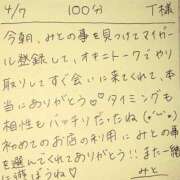 4/7 100分 T様
今朝、みとの事を見つけてマイガー
ル登録して、オキニトークでやり
取りしてすぐ会いに来てくれて、本
当にありがとう♡ タイミングも
相性もバッチリだったね(•'◡'•)
初めてのお店の利用に、みとの事
を選んでくれてありがとう!! また一緒
に遊ぼうね♡ みと